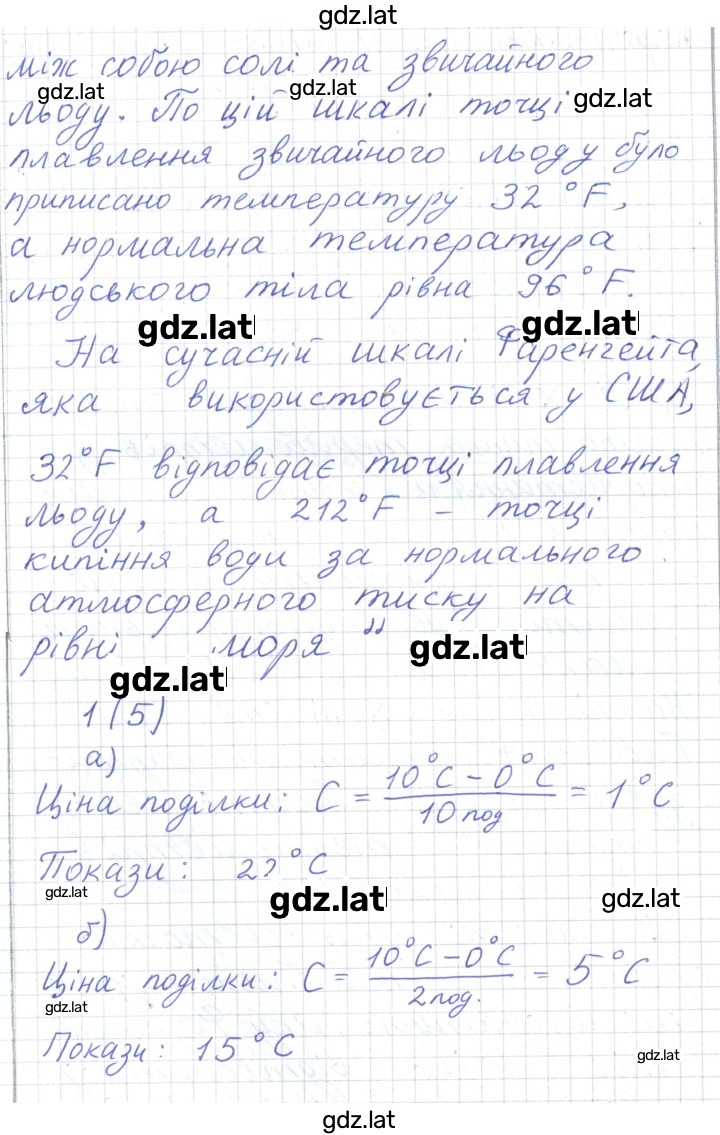 gdz.lat
між собою солі та звичайного
gdz.lat gdz.lat gdz.lat
льоду. По цій шкалі точці
плавлення звичайного льоду було
приписано температуру 32 °F,
а нормальна температура
людського тіла рівна 96°F.
gdz.lat gdz.lat
На сучасній шкалі Фаренгейта,
яка використовується у США,
32°F відповідає точці плавлення
льоду, а 212°F – точці
кипіння води за нормального
атмосферного тиску на
рівні моря "
gdz.lat
gdz.lat
1(5)
а)
Ціна поділки: C = (10°C – 0°C) / 10 под = 1°C
Покази: 22°C
gdz.lat gdz.lat gdz.lat
б)
Ціна поділки: C = (10°C – 0°C) / 2 под. = 5°C
gdz.lat
Покази: 15°C
gdz.lat
gdz.lat